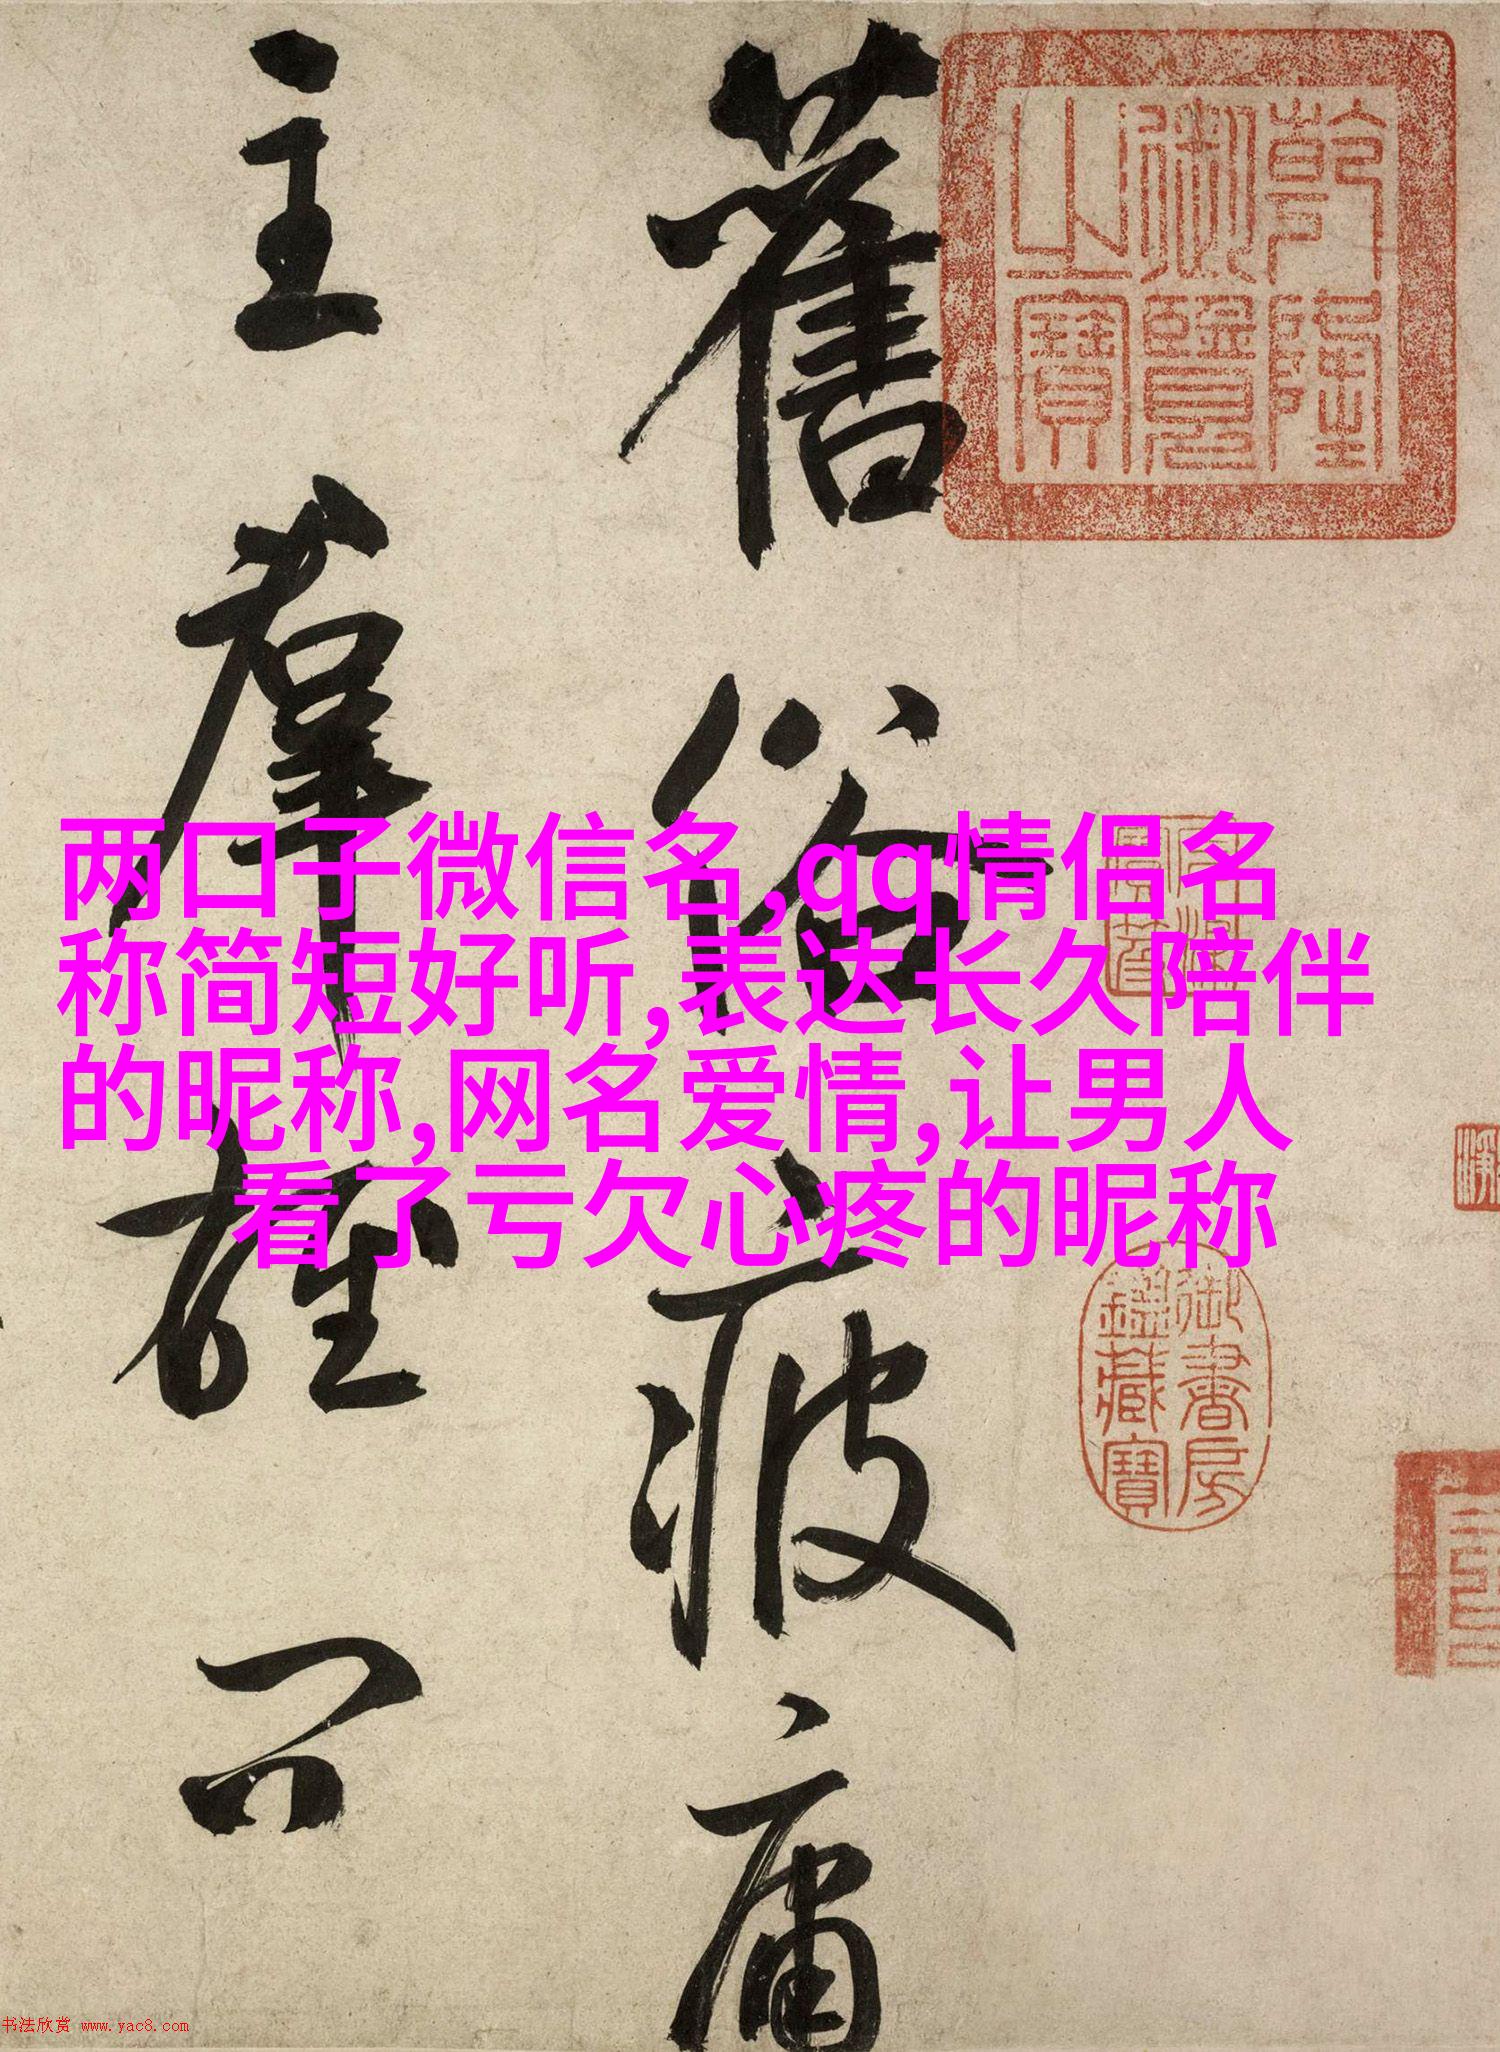 两口子微信名,qq情侣名
称简短好听,表达长久陪伴
的昵称,网名爱情,让男人
看了亏欠心疼的昵称
乾隆
御覽
之寶
舊俗疲庸
主羣雄問
御書房
鑑藏寶
书法欣赏 www.yac8.com